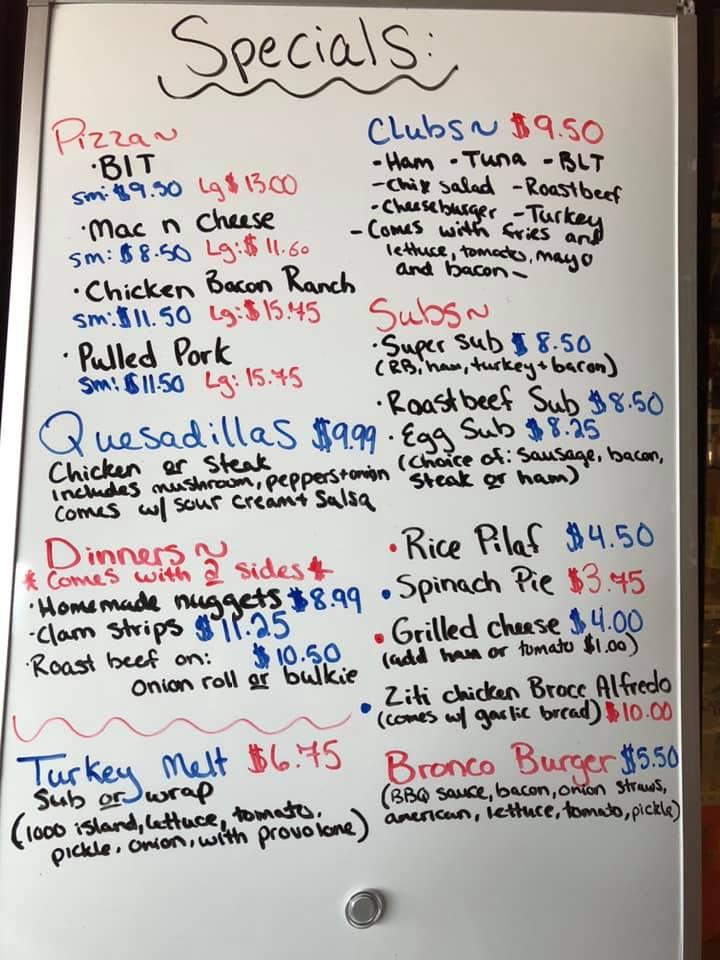 Specials:
Pizza~
·BLT
sm:$9.50 Lg$13.00
·Mac n Cheese
sm:$8.50 Lg:$11.60
·Chicken Bacon Ranch
sm:$11.50 Lg:$15.75
·Pulled Pork
sm:$11.50 Lg:15.75
Quesadillas $9.99
Chicken or Steak
includes mushroom, peppers+onion
comes w/ sour cream+ salsa
Dinners~
*comes with 2 sides*
·Homemade nuggets $8.99
-Clam strips $11.25
·Roast beef on: $10.50
onion roll or bulkie
Turkey Melt $6.75
Sub or wrap
(1000 island, lettuce, tomato,
pickle, onion, with provolone)
Clubs~ $9.50
-Ham -Tuna -BLT
-Chix salad -Roastbeef
-Cheeseburger -Turkey
-Comes with fries and
lettuce, tomato, mayo
and bacon-
Subs~
·Super Sub $8.50
(RB, ham, turkey+bacon)
·Roastbeef Sub $8.50
·Egg Sub $8.25
(choice of: sausage, bacon,
steak or ham)
·Rice Pilaf $4.50
·Spinach Pie $3.75
·Grilled cheese $4.00
(add ham or tomato $1.00)
·Ziti chicken Brocc Alfredo
(comes w/ garlic bread) $10.00
Bronco Burger $5.50
(BBQ sauce, bacon, onion straws,
american, lettuce, tomato, pickle)